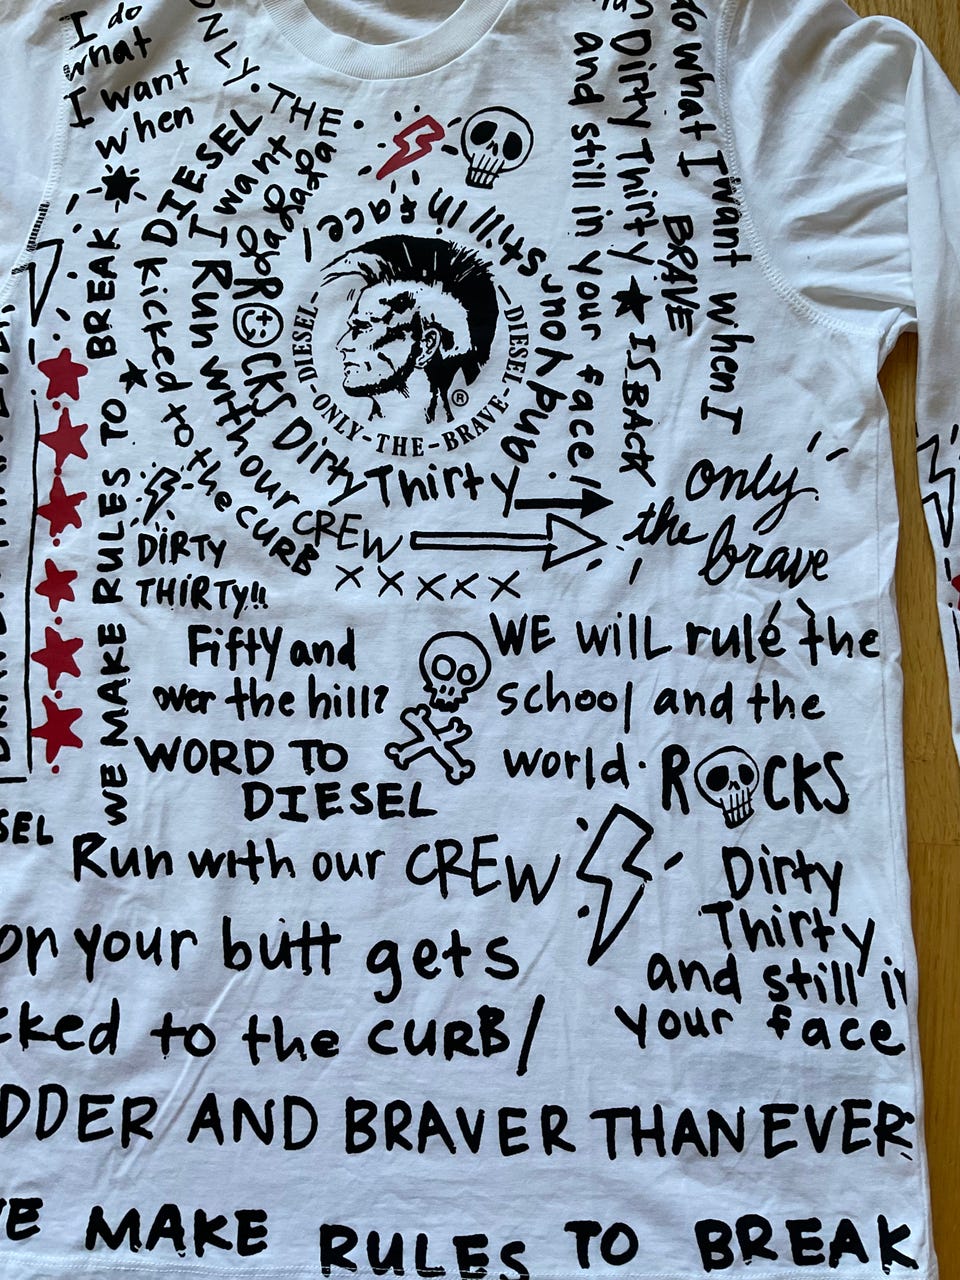 I do
what
I want
when
ONLY. THE
DIESEL
I want
I Run with our
CREW
kicked to
the CURB
R CKS Dirty Thirty
and your still in face!
DIESEL
ONLY-THE-BRAVE
DIESEL
®
and still in your face!
Dirty Thirty
IS BACK
do what I want when I
BRAVE
only
the brave
WE MAKE RULES TO BREAK
DIRTY
THIRTY!!
X X X X X
Fifty and
over the hill?
WORD TO
DIESEL
WE will rule the
school and the
world. R CKS
SEL
Run with our CREW
Dirty
Thirty
and still in
your face
on your butt gets
cked to the CURB/
DDER AND BRAVER THAN EVER
E MAKE RULES TO BREAK